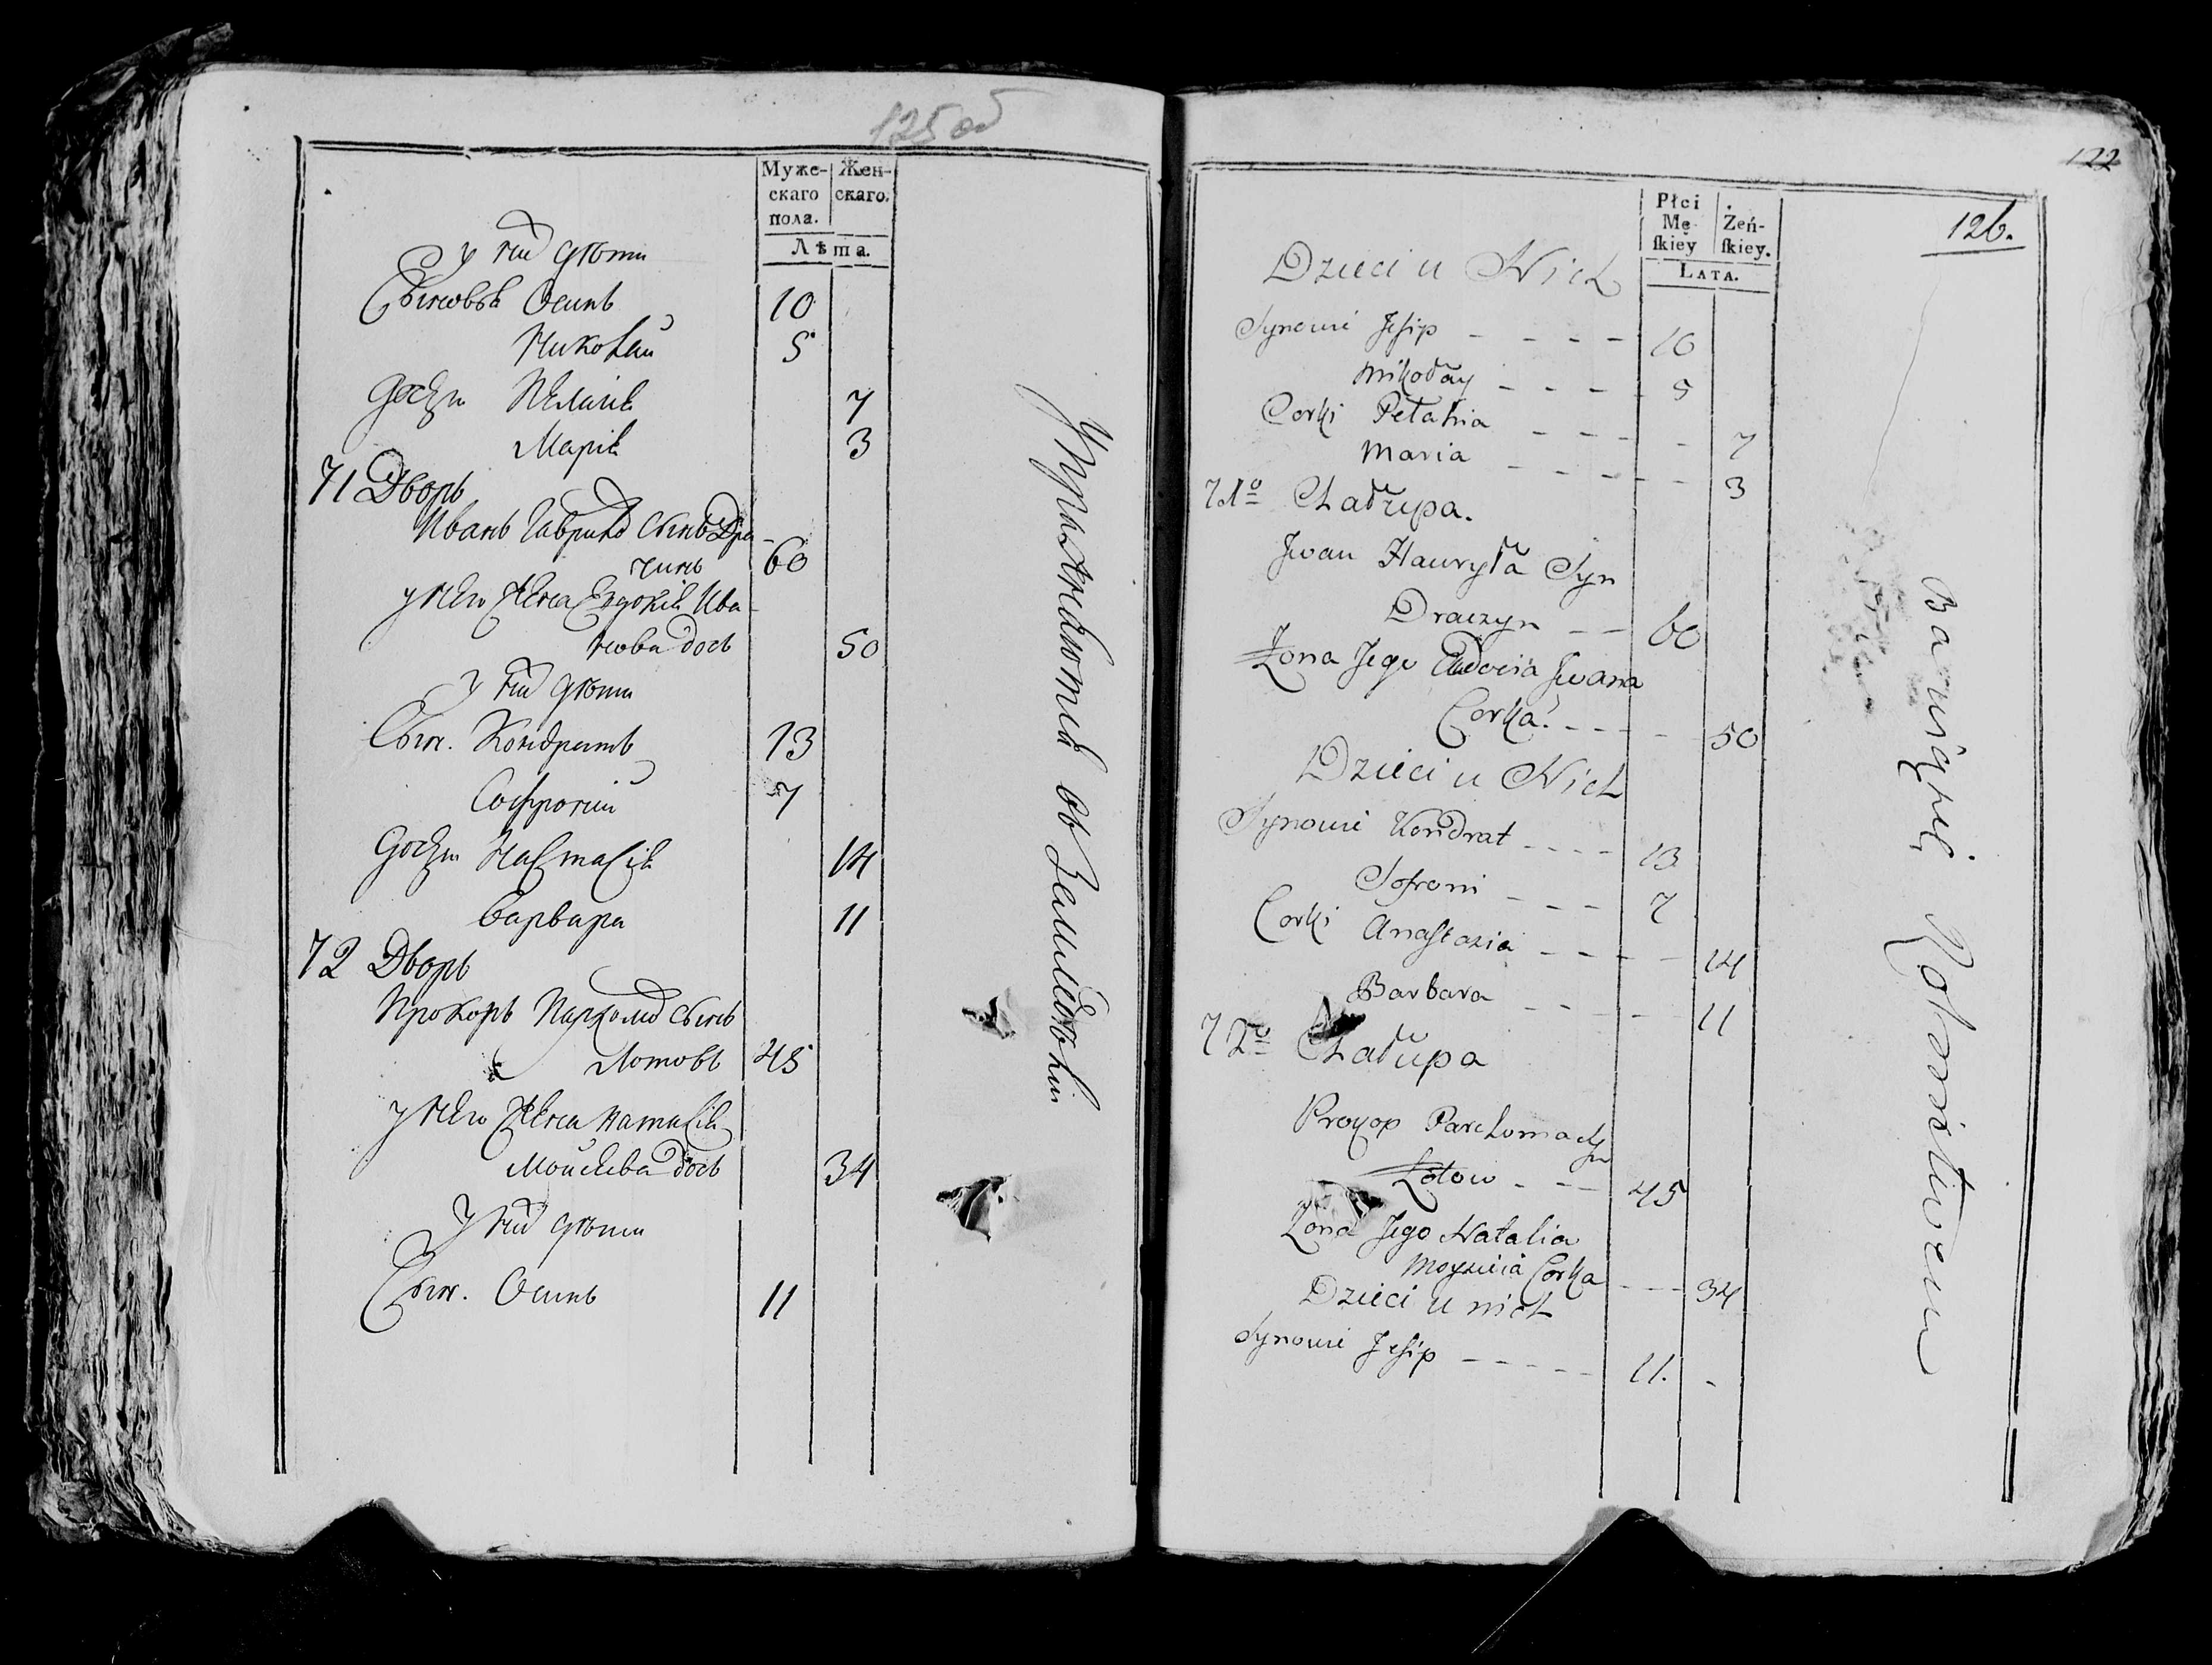 125 об
Муже-
скаго
пола.
Жен-
скаго.
Лѣта.
у них дѣти
Сыновья Осипъ 10
Николай 5
дочери Пелагия 7
Мария 3
71 Дворъ
Иванъ Гаврилов сынъ Дра-
чинъ 60
у него жена Евдокия Ива-
нова дочь 50
у них дѣти
Сын. Кондратъ 13
Софроний 7
дочери Настасия 14
Варвара 11
72 Дворъ
Прокопъ Пархомов сынъ
Лотовъ 45
у него жена Наталия
Мойсеева дочь 34
у них дѣти
Сын. Осипъ 11
Упражняются въ Земледелии
122
126.
Płci
Mę-
ſkiey
Żeń-
ſkiey.
LATA.
Dzieci u Nich
Synowie Jesip - - - - 10
Mikołay - - - 5
Corki Pelahia - - - - 7
Maria - - - - - 3
71º Chałupa.
Jwan Hauryła Syn
Draczyn - - 60
Żona Jego Eudocia Jwana
Corka. - - - - 50
Dzieci u Nich
Synowie Kondrat - - - - 13
Sofroni - - - 7
Corki Anastazia - - - - - 14
Barbara - - - - - 11
72º Chałupa
Prokop Parchoma Syn
Łotow - - - 45
Żona Jego Natalia
Moyzieia Corka - - - 34
Dzieci u nich
Synowie Jesip - - - - - 11. -
Bawią się Rolnictwem